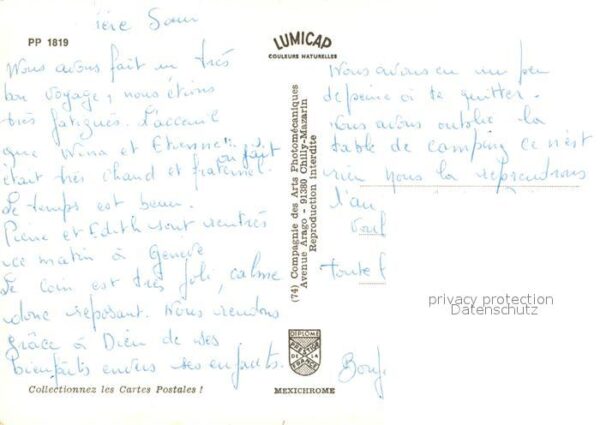 PP 1819
LUMICAP
COULEURS NATURELLES
Nous avons fait un très
bon voyage, nous étions
très fatigués. L'acceuil
que Wina et Etienne on fait
était très chaud et fraternel.
Le temps est beau.
Pierre et Edith sont rentrés
ce matin à Genève
Le coin est très joli, calme
donc reposant. Nous rendons
grâce à Dieu de ses
bienfaits envers ses enfants.
Collectionnez les Cartes Postales !
(74) Compagnie des Arts Photomécaniques
Avenue Arago - 91380 Chilly-Mazarin
Reproduction interdite
DIPLOME
PRESTIGE
DE LA
FRANCE
MEXICHROME
Nous avons eu un peu
de peine à te quitter.
Nous avons oublié la
table de camping ce n'est
rien nous la reprendrons
l'an
toute
privacy protection
Datenschutz